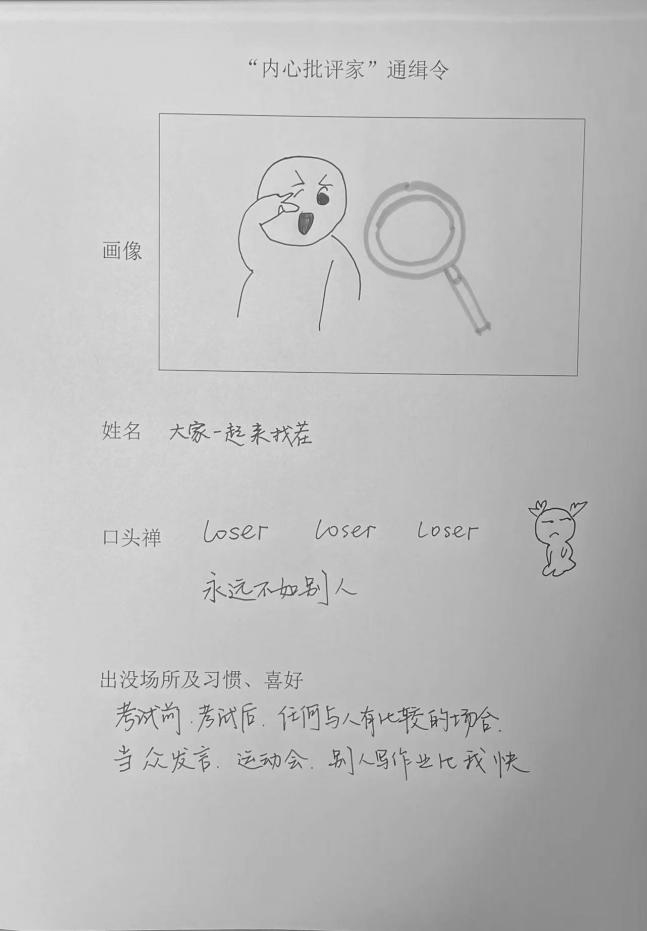 “内心批评家”通缉令
画像
姓名 大家一起来找茬
口头禅 loser loser loser
永远不如别人
出没场所及习惯、喜好
考试前、考试后、任何与人有比较的场合、
当众发言、运动会、别人写作业比我快